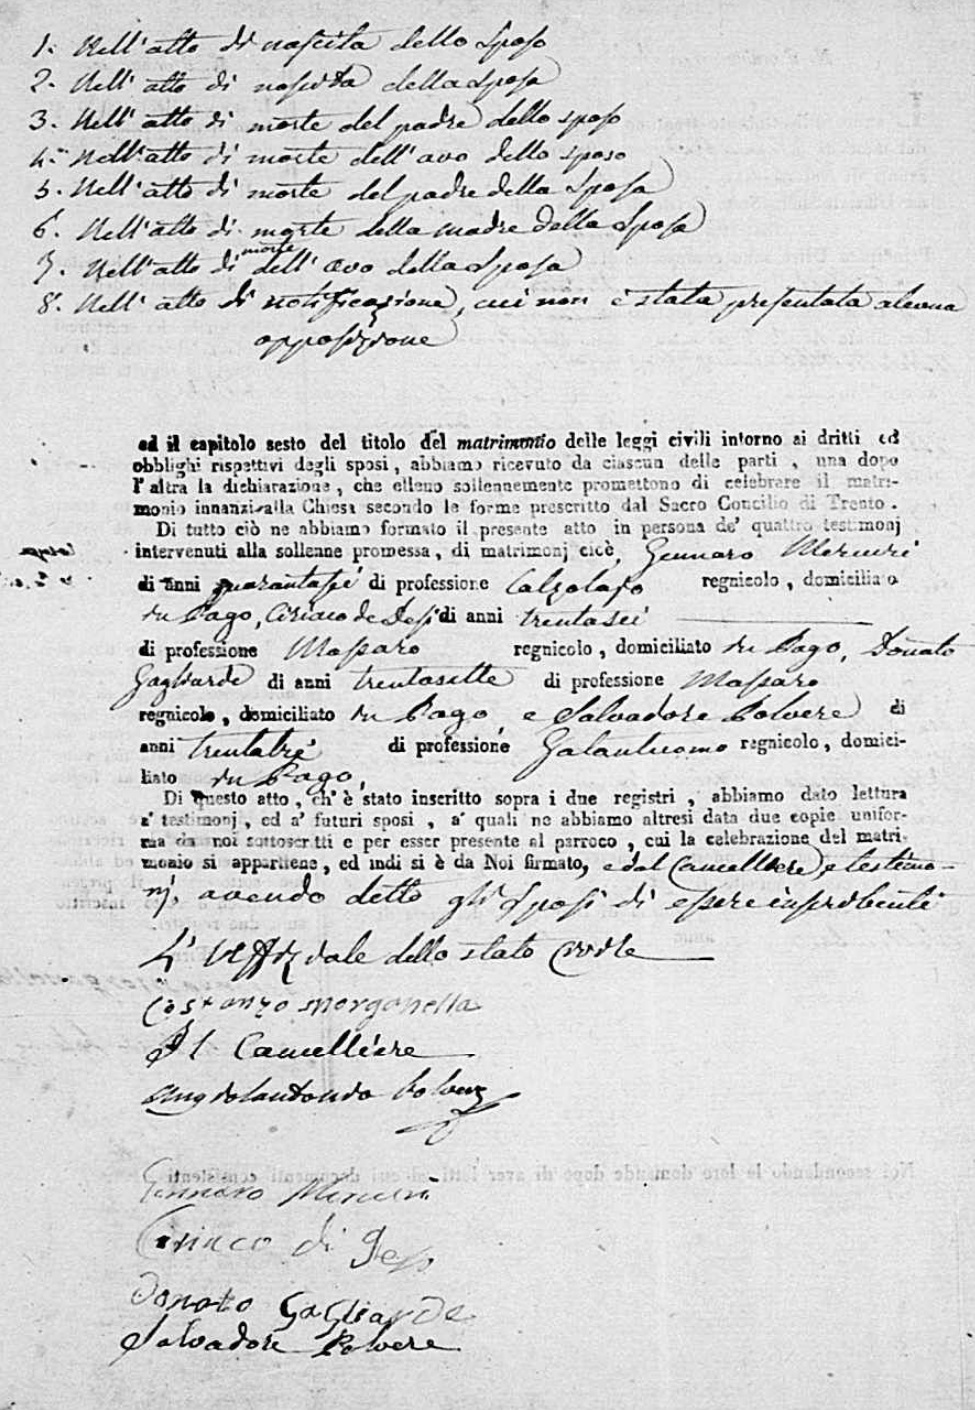 1. Nell'atto di nascita dello Sposo
2. Nell'atto di nascita della Sposa
3. Nell'atto di morte del padre dello sposo
4. Nell'atto di morte dell'avo dello sposo
5. Nell'atto di morte del padre della Sposa
6. Nell'atto di morte della madre della Sposa
7. Nell'atto di morte dell'avo della Sposa
8. Nell'atto di notificazione, cui non è stata presentata alcuna
opposizione
ed il capitolo sesto del titolo del matrimonio delle leggi civili intorno ai dritti ed
obblighi rispettivi degli sposi, abbiamo ricevuto da ciascun delle parti, una dopo
l'altra la dichiarazione, che elleno sollennemente promettono di celebrare il matri-
monio innanzi alla Chiesa secondo le forme prescritto dal Sacro Concilio di Trento.
Di tutto ciò ne abbiamo formato il presente atto in persona de' quattro testimonj
intervenuti alla sollenne promessa, di matrimonj cicè, Gennaro Mercuri
di anni quarantasei di professione Calzolajo regnicolo, domiciliato
in Pago, Ciriaco de Jesi di anni trentasei
di professione Massaro regnicolo, domiciliato in Pago, Donato
Gagliarde di anni trentasette di professione Massaro
regnicolo, domiciliato in Pago e Salvadore Polvere di
anni trentatre di professione Galantuomo regnicolo, domici-
liato in Pago,
Di questo atto, ch'è stato inscritto sopra i due registri, abbiamo dato lettura
a' testimonj, ed a' futuri sposi, a' quali ne abbiamo altresi data due copie unifor-
ma da noi sottoscritti e per esser presente al parroco, cui la celebrazione del matri-
monio si appartiene, ed indi si è da Noi firmato, e dal Cancelliere, e testimo-
nj, avendo detto gli Sposi di essere inscribenti
L'Uffiziale dello stato Civile
Costanzo
Il Cancelliere
Angelantonio Polvere
Gennaro Mercuri
Ciriaco di Jeso
Donato Gagliarde
Salvadore Polvere